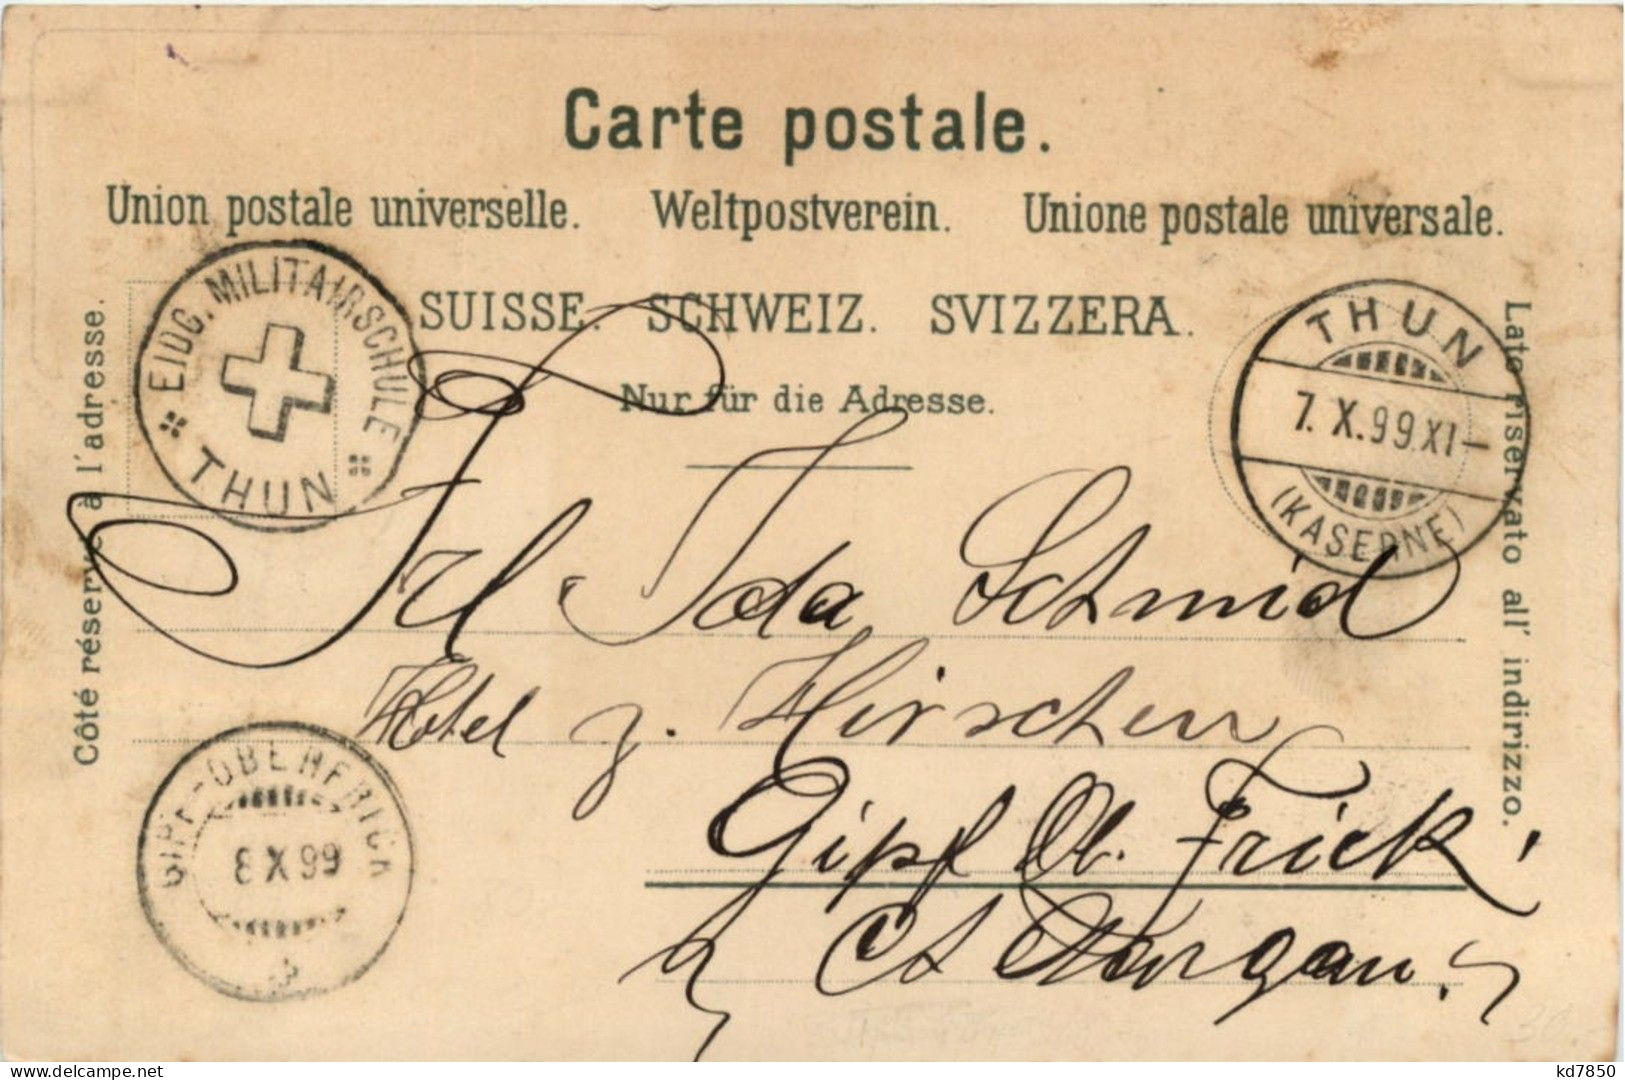 Carte postale.
Union postale universelle. Weltpostverein. Unione postale universale.
SUISSE. SCHWEIZ. SVIZZERA.
Nur für die Adresse.
Côté réservé à l'adresse.
Lato riservato all' indirizzo.
EIDG. MILITAIRSCHULE
THUN
THUN
7. X. 99 XI –
(KASERNE)
Frl. Ida Schmid
Hotel z. Hirschen
Gipf Ob. Frick
Ct Aargau.
GIPF-OBERFRICK
8 X 99
delcampe.net
kd7850